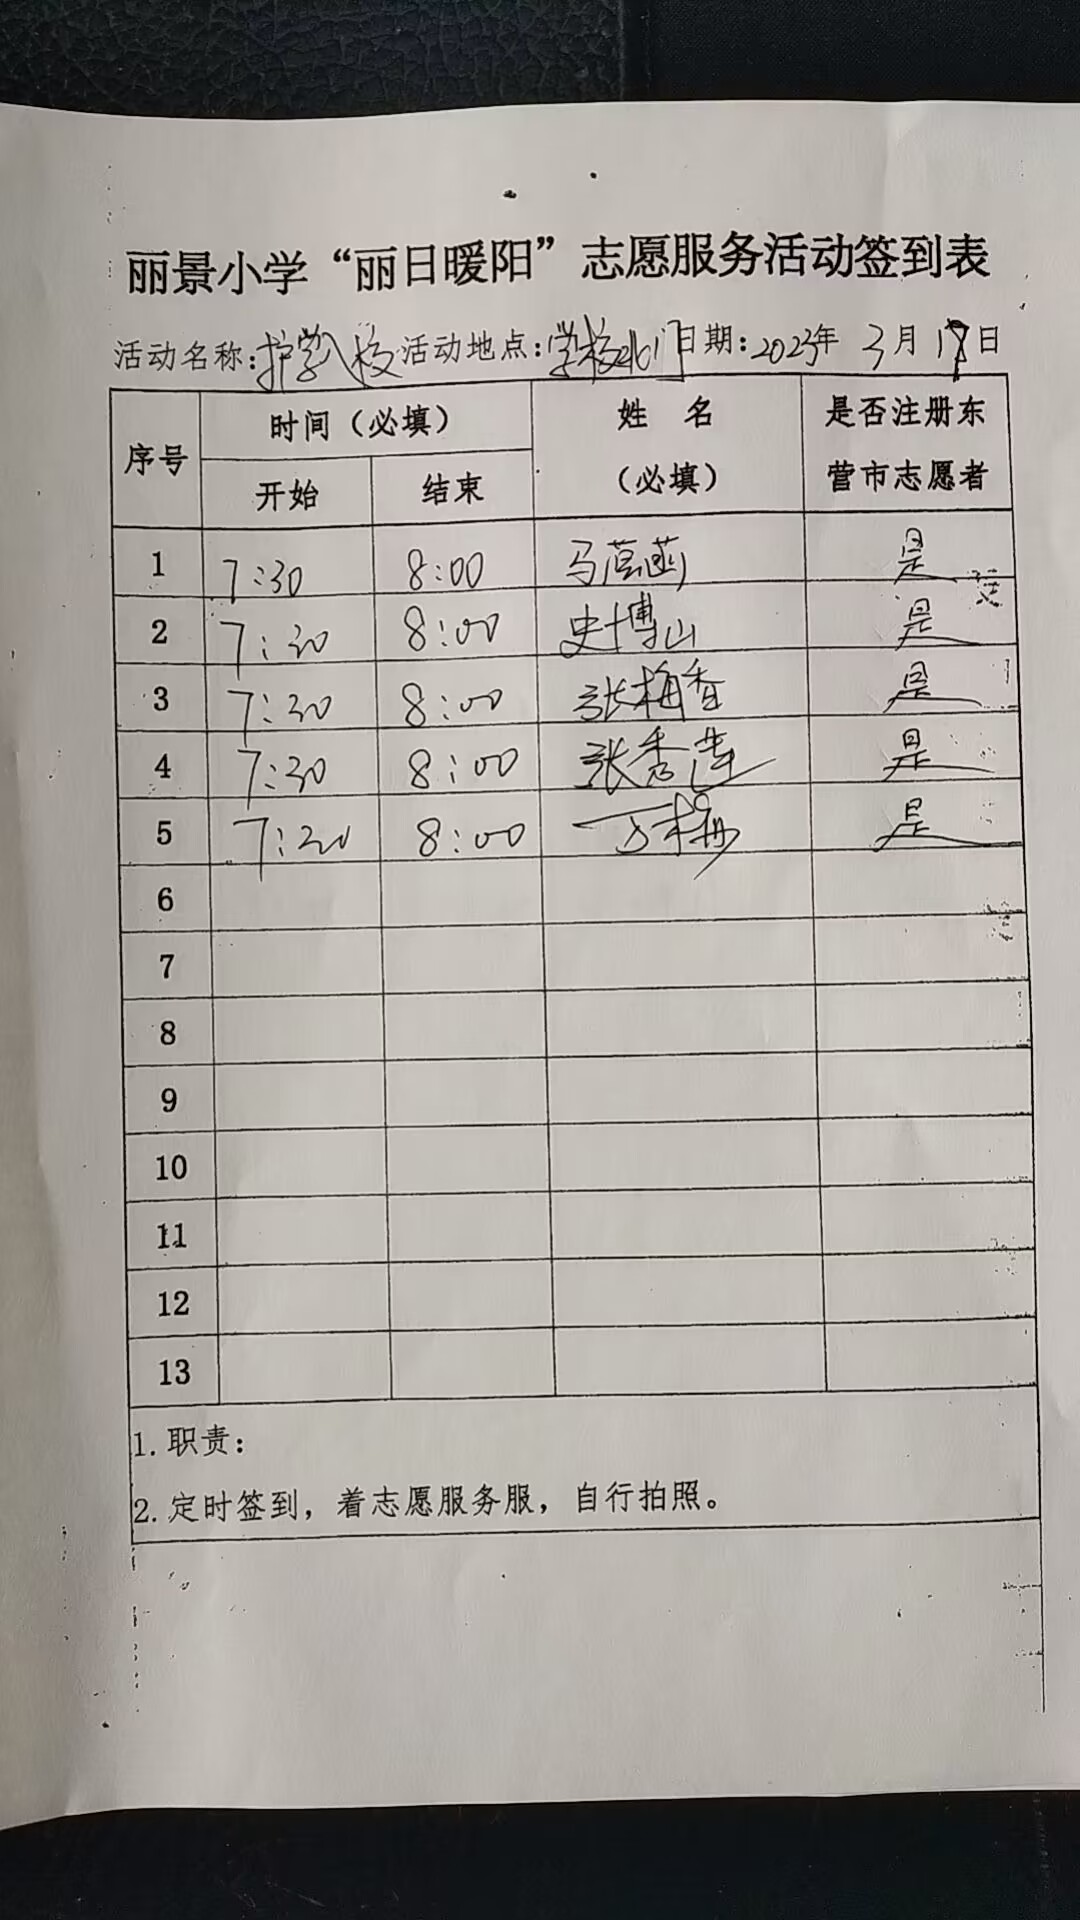 丽景小学“丽日暖阳”志愿服务活动签到表
活动名称:护学入校 活动地点:学校北门 日期:2023年 3月 17日
序号 时间（必填） 姓 名（必填） 是否注册东营市志愿者
开始 结束
1 7:30 8:00 马 是
2 7:30 8:00 史博山 是
3 7:30 8:00 张梅香 是
4 7:30 8:00 张秀莲 是
5 7:20 8:00 丁梅 是
6
7
8
9
10
11
12
13
1.职责：
2.定时签到，着志愿服务服，自行拍照。